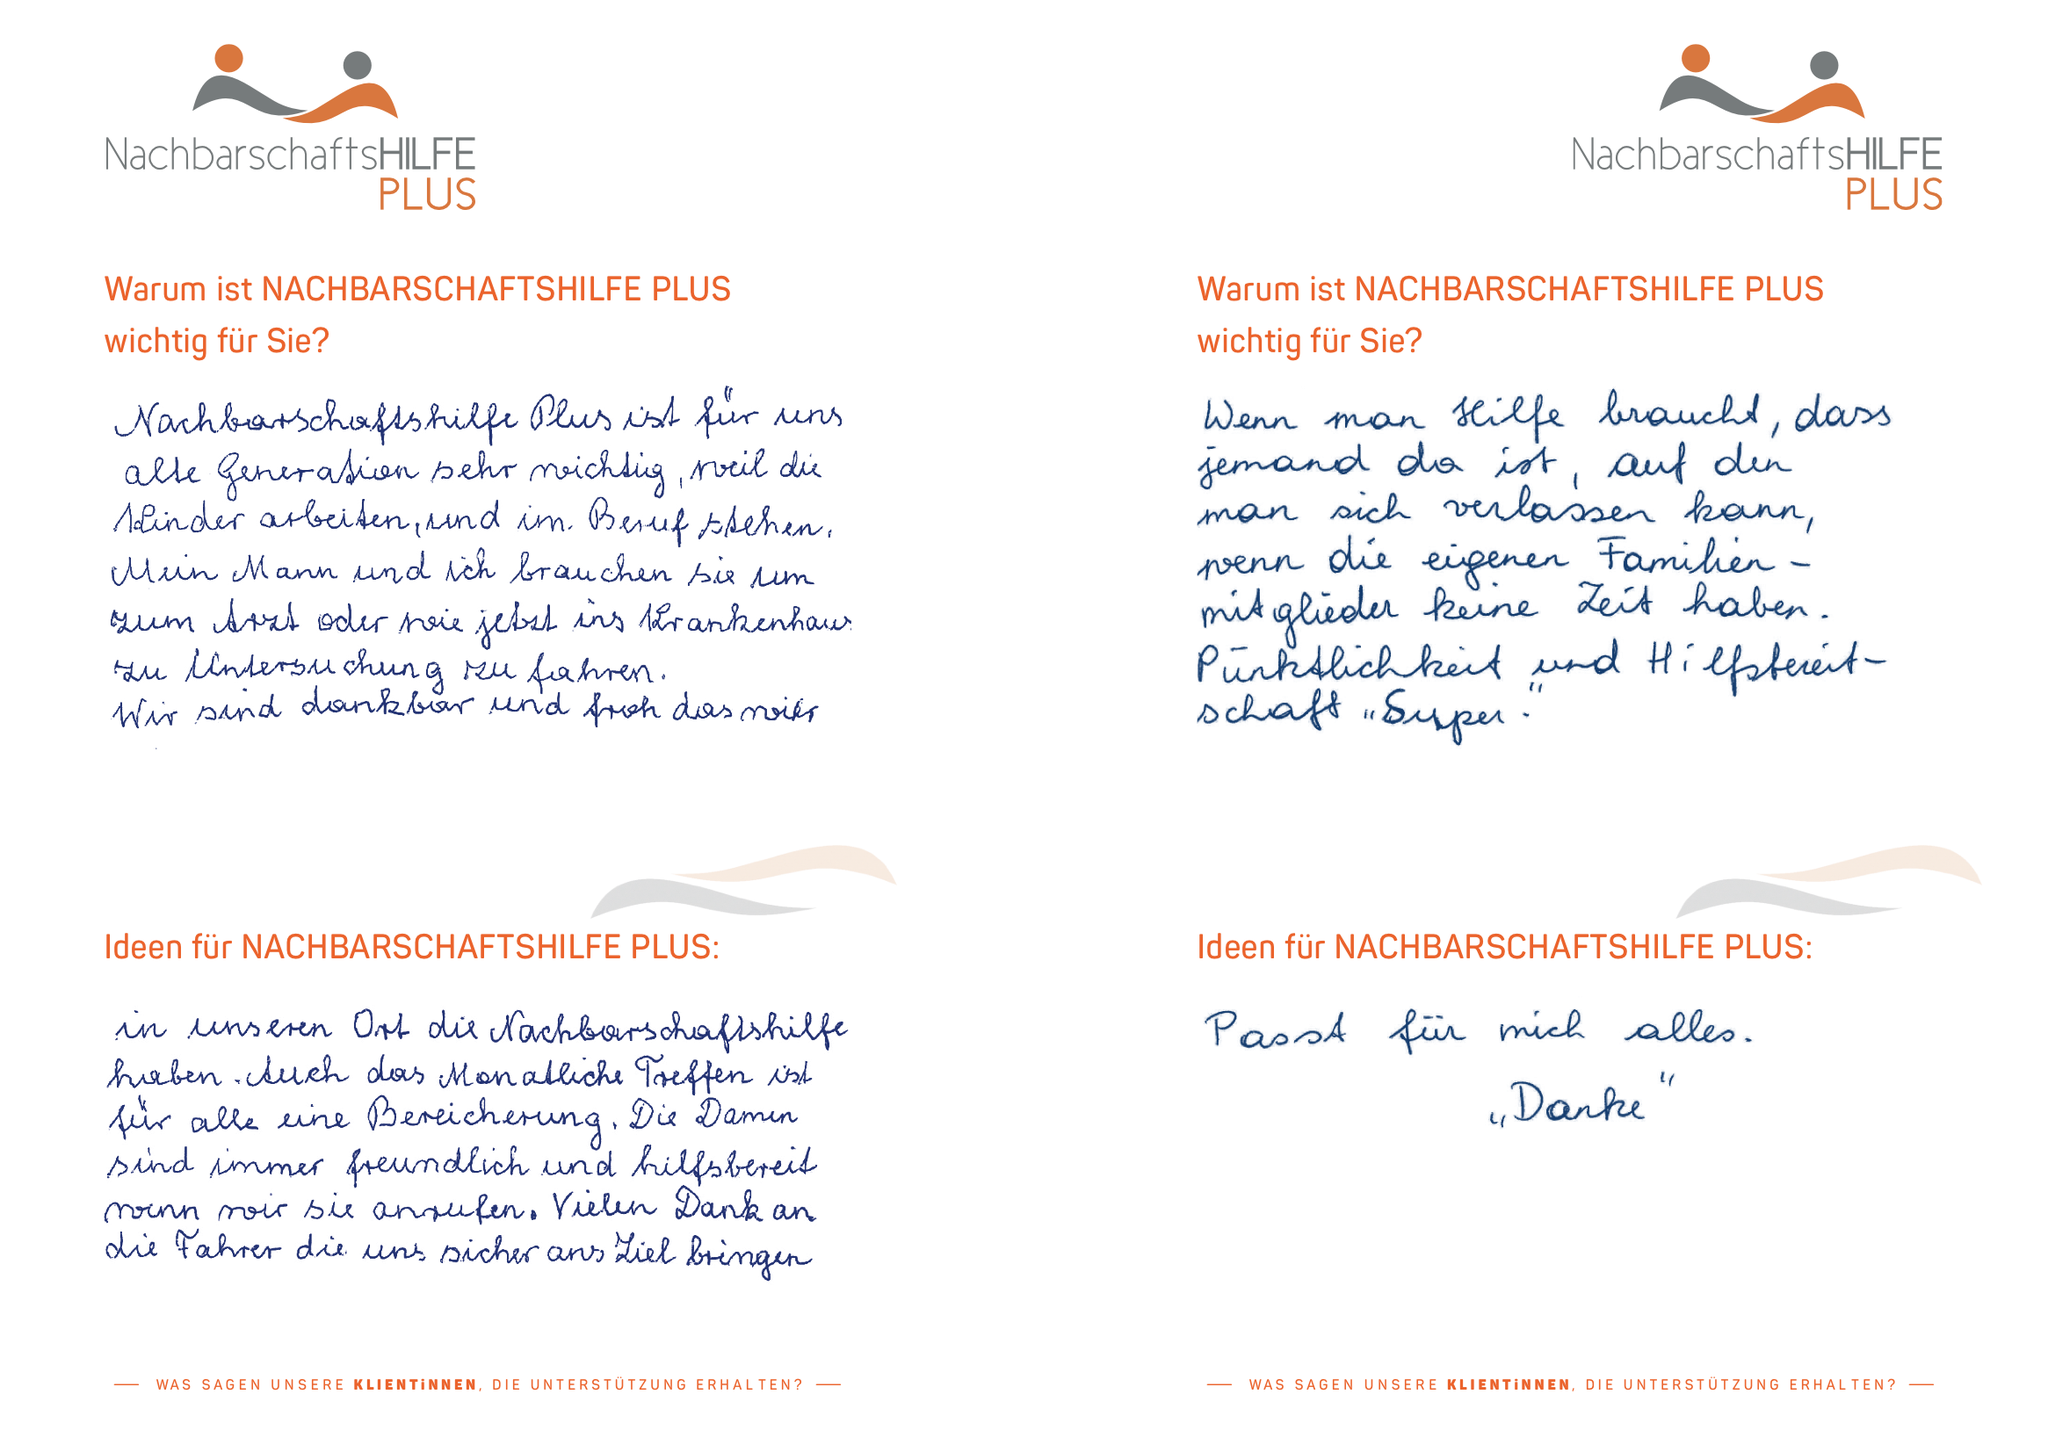 NachbarschaftsHILFE
PLUS
Warum ist NACHBARSCHAFTSHILFE PLUS
wichtig für Sie?
Nachbarschaftshilfe Plus ist für uns
alte Generation sehr wichtig, weil die
Kinder arbeiten, und im Beruf stehen.
Mein Mann und ich brauchen sie um
zum Arzt oder wie jetzt ins Krankenhaus
zu Untersuchung zu fahren.
Wir sind dankbar und froh das wir
Ideen für NACHBARSCHAFTSHILFE PLUS:
in unseren Ort die Nachbarschaftshilfe
haben. Auch das Monatliche Treffen ist
für alle eine Bereicherung. Die Damen
sind immer freundlich und hilfsbereit
wenn wir sie anrufen. Vielen Dank an
die Fahrer die uns sicher ans Ziel bringen
— WAS SAGEN UNSERE KLIENTiNNEN, DIE UNTERSTÜTZUNG ERHALTEN? —
NachbarschaftsHILFE
PLUS
Warum ist NACHBARSCHAFTSHILFE PLUS
wichtig für Sie?
Wenn man Hilfe braucht, dass
jemand da ist, auf den
man sich verlassen kann,
wenn die eigenen Familien-
mitglieder keine Zeit haben.
Pünktlichkeit und Hilfsbereit-
schaft „Super."
Ideen für NACHBARSCHAFTSHILFE PLUS:
Passt für mich alles.
„Danke"
— WAS SAGEN UNSERE KLIENTiNNEN, DIE UNTERSTÜTZUNG ERHALTEN? —